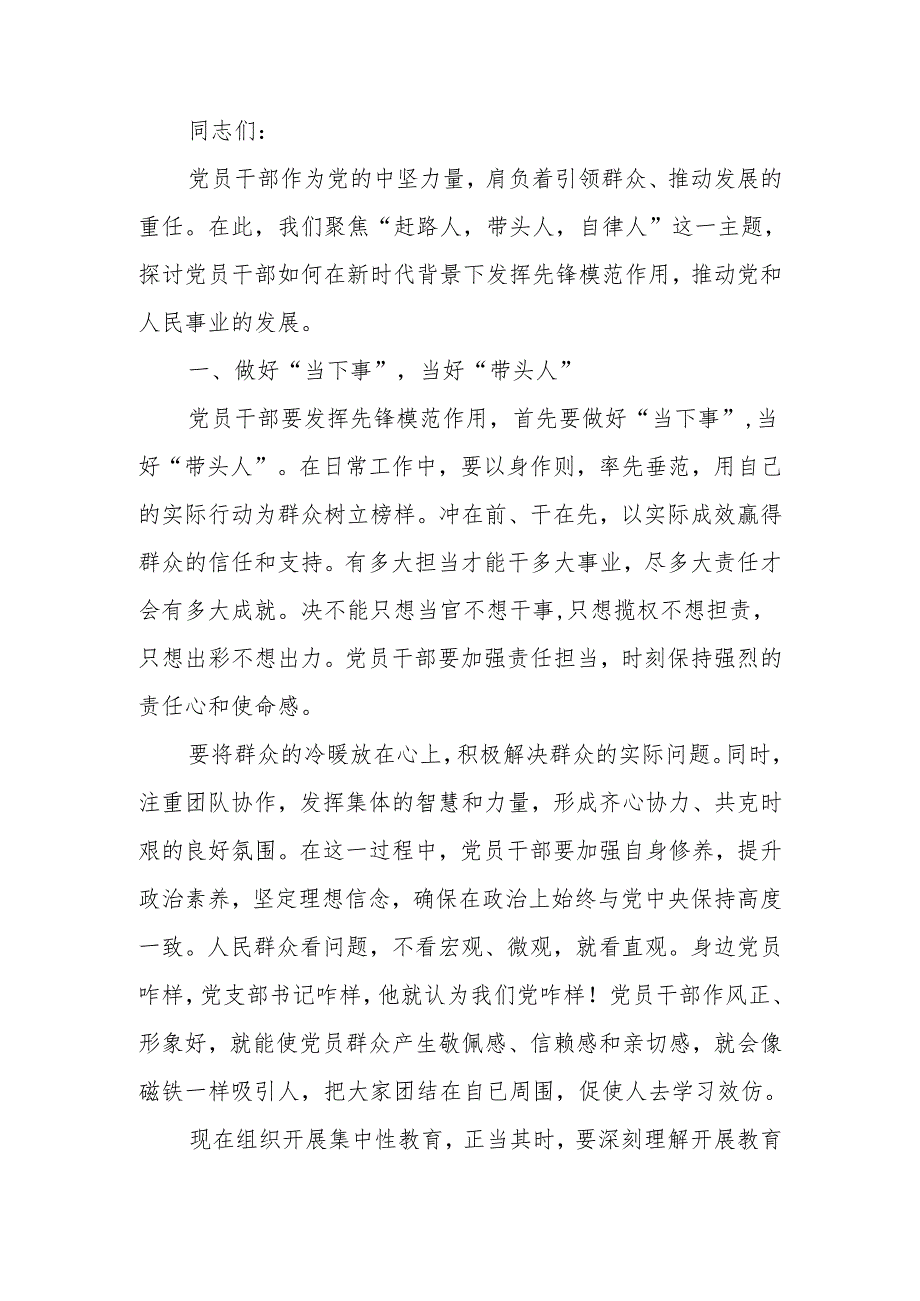 同志们：
党员干部作为党的中坚力量，肩负着引领群众、推动发展的
重任。在此，我们聚焦“赶路人，带头人，自律人”这一主题，
探讨党员干部如何在新时代背景下发挥先锋模范作用，推动党和
人民事业的发展。
一、做好“当下事”，当好“带头人”
党员干部要发挥先锋模范作用，首先要做好“当下事”,当
好“带头人”。在日常工作中，要以身作则，率先垂范，用自己
的实际行动为群众树立榜样。冲在前、干在先，以实际成效赢得
群众的信任和支持。有多大担当才能干多大事业，尽多大责任才
会有多大成就。决不能只想当官不想干事,只想揽权不想担责，
只想出彩不想出力。党员干部要加强责任担当，时刻保持强烈的
责任心和使命感。
要将群众的冷暖放在心上,积极解决群众的实际问题。同时，
注重团队协作，发挥集体的智慧和力量，形成齐心协力、共克时
艰的良好氛围。在这一过程中，党员干部要加强自身修养，提升
政治素养，坚定理想信念，确保在政治上始终与党中央保持高度
一致。人民群众看问题，不看宏观、微观，就看直观。身边党员
咋样,党支部书记咋样,他就认为我们党咋样！党员干部作风正、
形象好，就能使党员群众产生敬佩感、信赖感和亲切感，就会像
磁铁一样吸引人，把大家团结在自已周围，促使人去学习效仿。
现在组织开展集中性教育，正当其时，要深刻理解开展教育